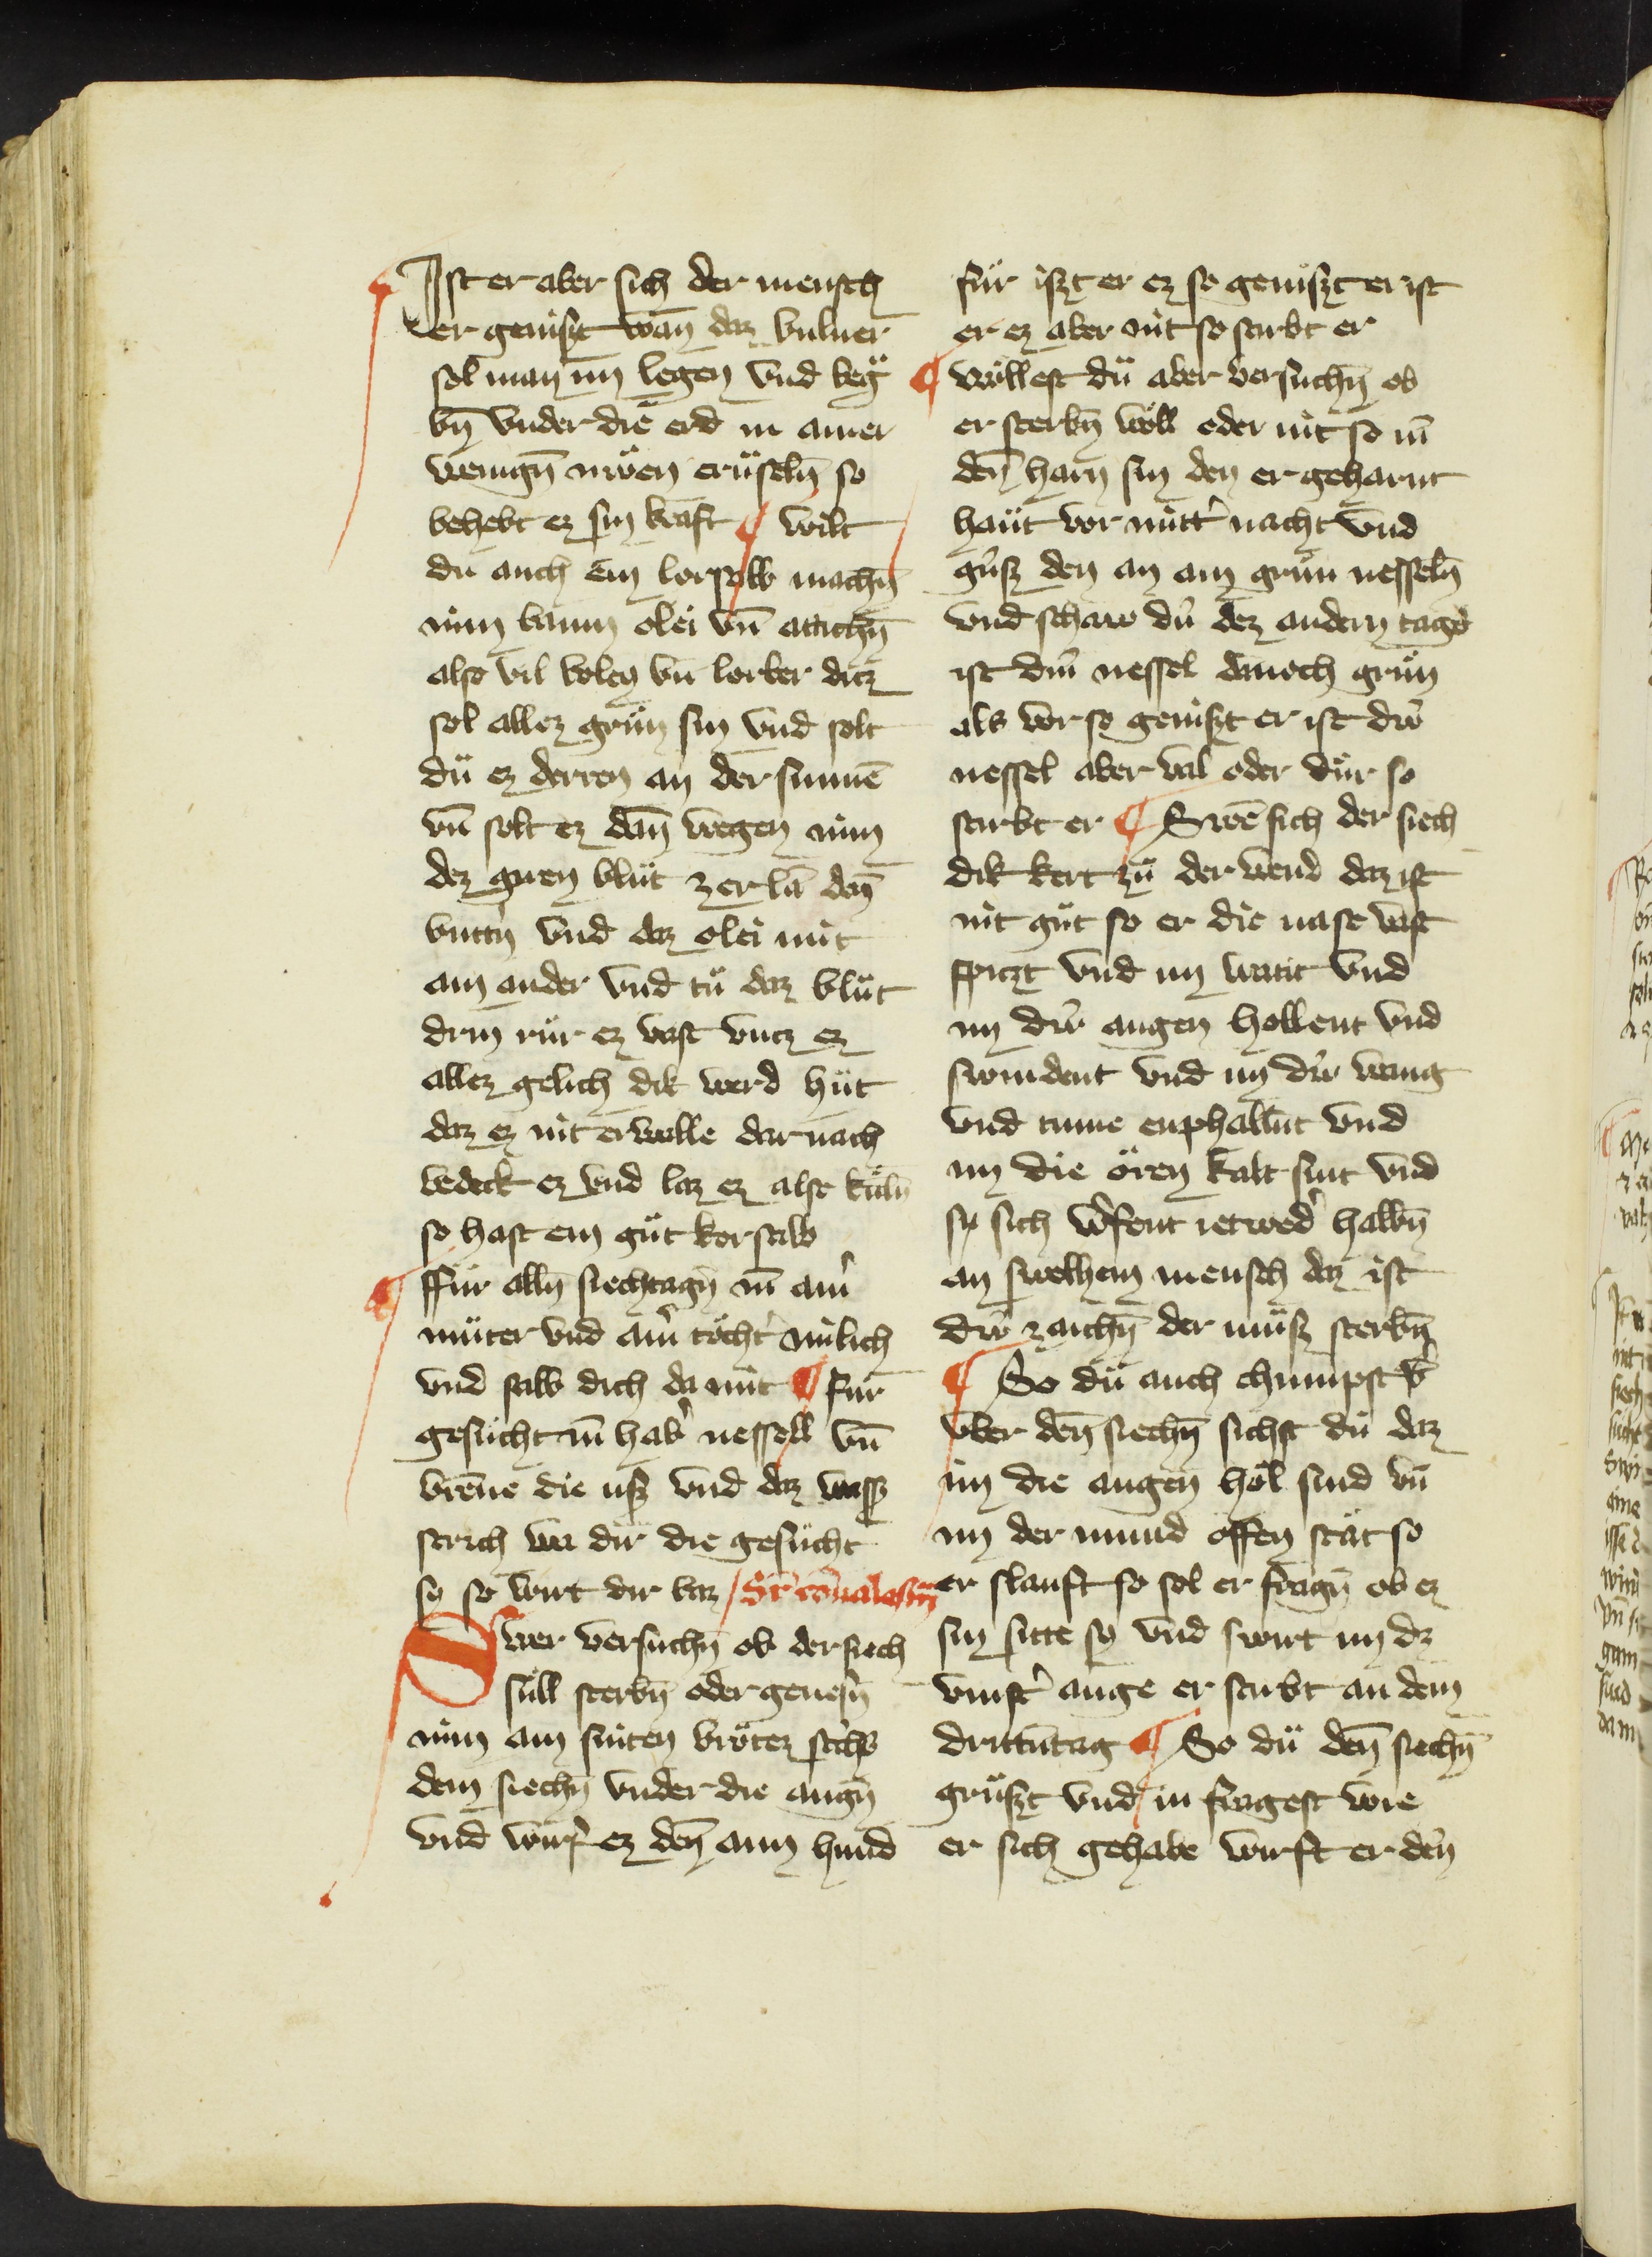 Ist er aber sich der mensch
er genist wan̄ daz buluer
sol man im̄ legen vnd begra
bn̄ vnder die erd in ainer
wenign̄ niwen erüseln̄ so
behebt ez sin kraft ¶ wilt
du auch ein lorsalb machn̄
nim baum olei vn̄ attichn̄
also vil boleȳ vn̄ lorber ditz
sol allez grün sin vnd solt
du ez derren an der sunnē
vn̄ solt ez dan̄ wegen nim
dez guten blüt zerla den̄
buttr̄ vnd daz olei mit
ain ander vnd tů daz blüt
drin rür ez vast vntz ez
allez gelich dik werd hüt
daz ez nit erwalle dar nach
bedeck ez vnd laz ez also kuln̄
so hast ein gůt lorsalb
¶ ffür alln̄ siechtagn̄ im̄ ainr
můter vnd ainr tochtr milich
vnd salb dich da mit ¶ für
gesücht im̄ habr nessell vn̄
brēne die usz vnd daz wassr
strich wa dir die gesücht
sy so wirt dir baz
Swer versuchn̄ ob der siech
süll sterbn̄ oder genesn̄
nim ain sniten brötez strichs
dem siechn̄ vnder die augn̄
vnd wirf ez den̄ aim hund
für iszt er ez so geniszt er ist
er ez aber nit so stirbt er
¶ wöllest dů aber versuchn̄ ob
er sterbn̄ wöll oder nit so im̄
den̄ harn sin den er geharnt
haüt vor mittr nacht vnd
güsz den an ain grün nesseln̄
vnd schaw dů dez andern tags
ist diu nessel dannoch grün
als vor so geniszt er ist diw
nessel aber val oder dür so
stirbt er ¶ Swē sich der siech
dik kert zů der wend daz ist
nit gůt so er die nase vast
spitzt vnd im watit vnd
im diw augen hollent vnd
swindent vnd im diw wang
vnd tinne enphallnt vnd
im die ören kalt sint vnd
sy sich wr̄fent ietwedr halbn̄
an swelhem mensch daz ist
diw zaichn̄ der můsz sterbn̄
¶ So dů auch chumpst
vber den̄ siechn̄ sichst du daz
im die augen hol sind vn̄
im der mund offen stät so
er slauft so sol er fragn̄ ob ez
sin sitte sy vnd swirt im dz
vinstr auge er stirbt an dem
drittn̄ tag ¶ So dů den̄ siechn̄
grüszt vnd in fragest wie
er sich gehabe wirft er den